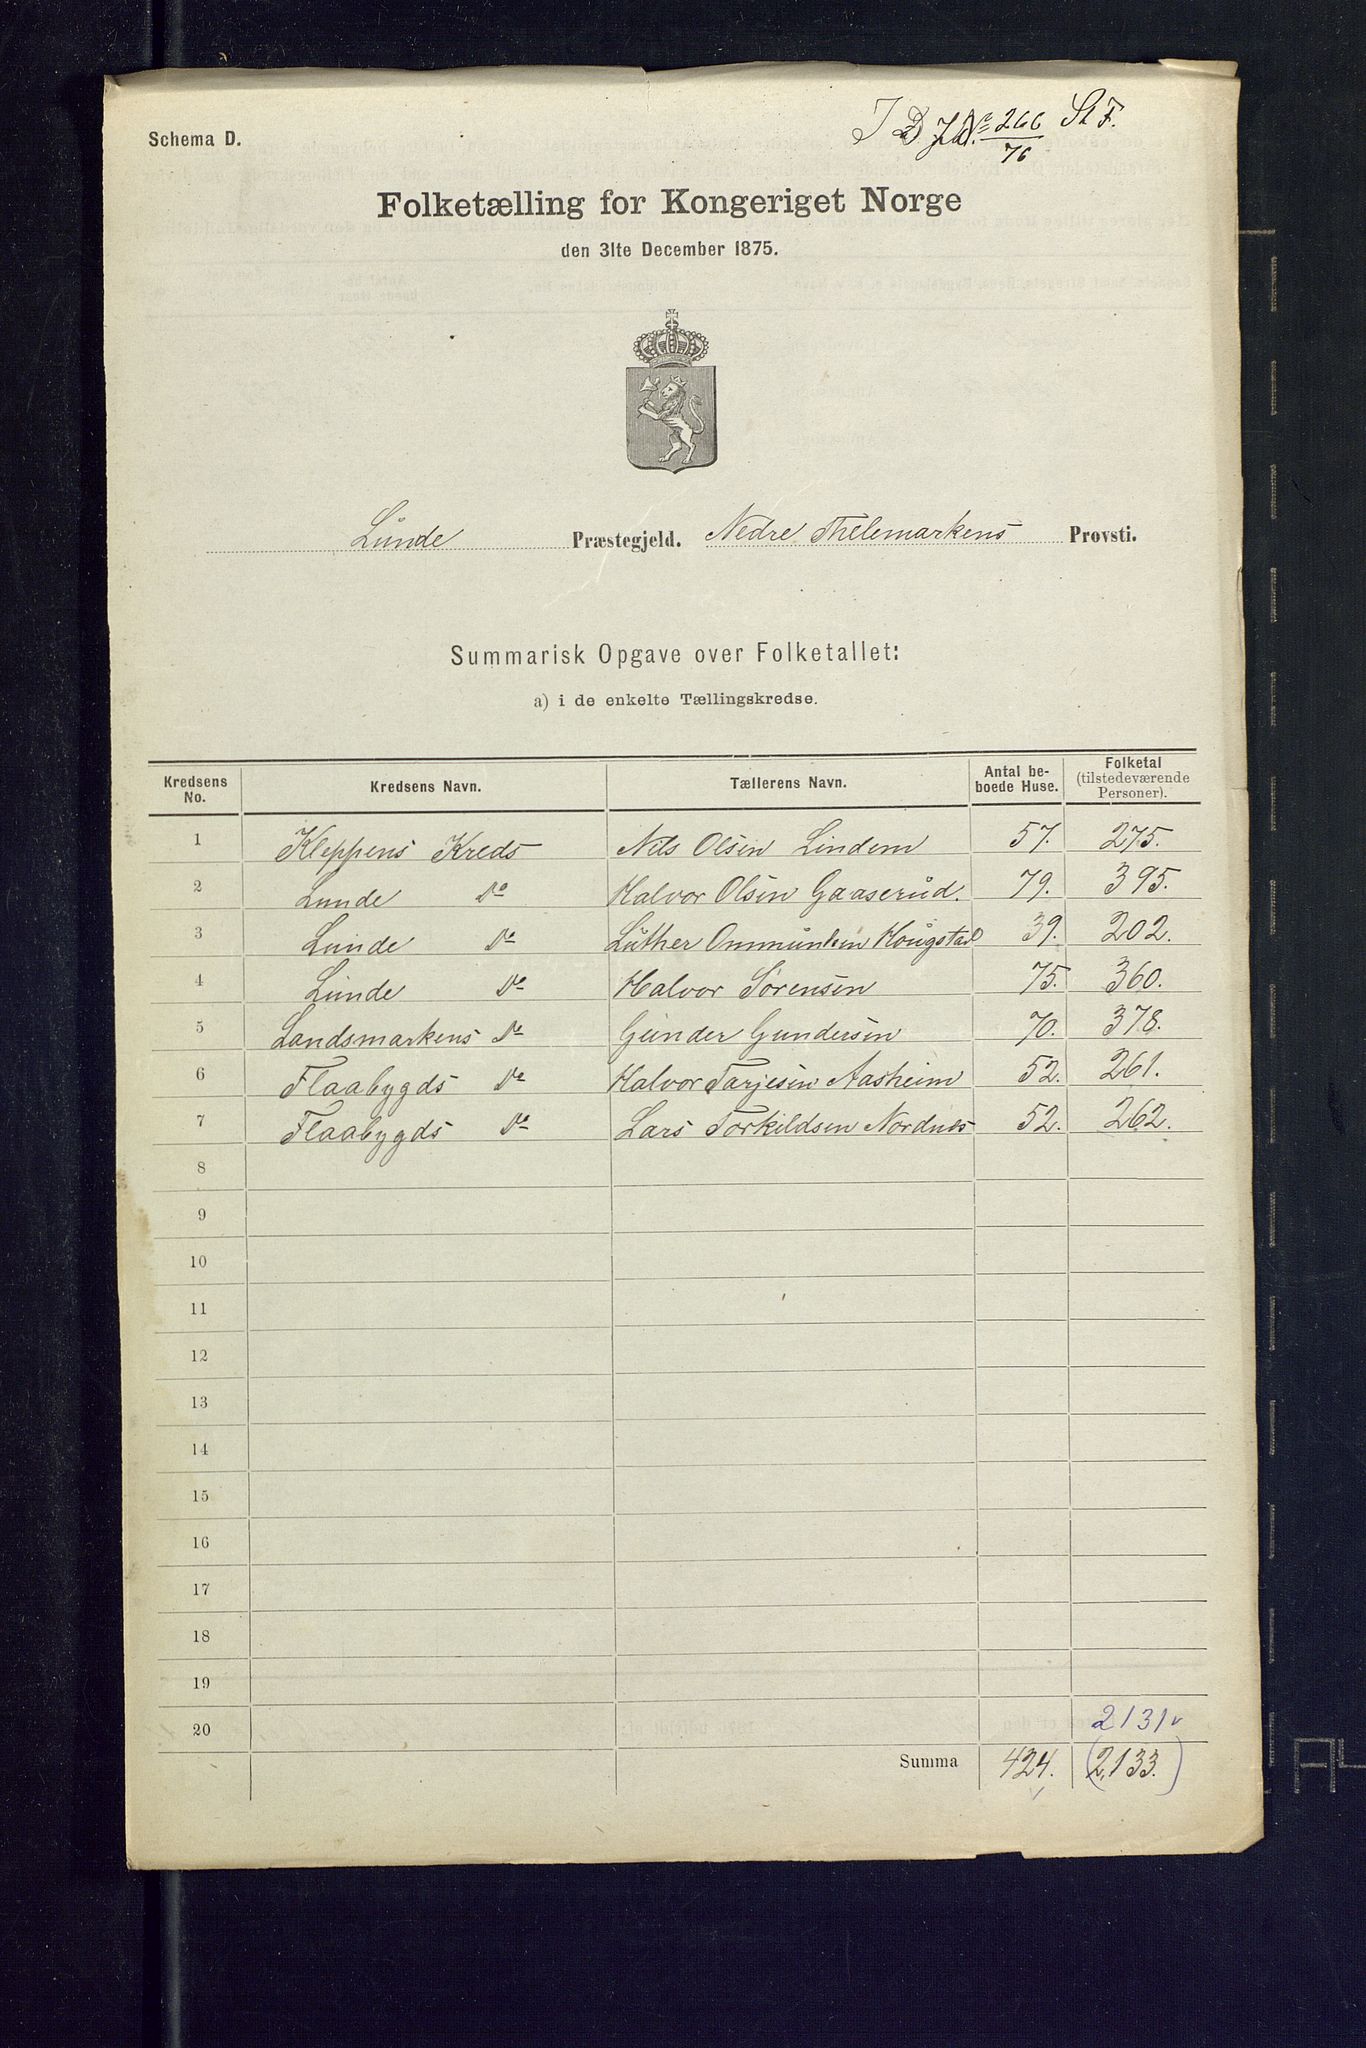 J. D. Jd. № 266/76 St F.
Schema D.
Folketælling for Kongeriget Norge
den 31te December 1875.
Lunde Præstegjeld. Nedre Thelemarkens Provsti.
Summarisk Opgave over Folketallet:
a) i de enkelte Tællingskredse.
Kredsens No. Kredsens Navn. Tællerens Navn. Antal beboede Huse. Folketal (tilstedeværende Personer).
1 Kleppens Kreds Nils Olsen Lindem 57. 275.
2 Lunde Do Halvor Olsen Gaaserud. 79. 395.
3 Lunde Do Luther Ommundsen Hougstad 39. 202.
4 Lunde Do Halvor Sørensen 75. 360.
5 Landsmarkens Do Gunder Gundersen 70. 378.
6 Flaabygds Do Halvor Tarjesen Aasheim 52. 261.
7 Flaabygds Do Lars Torkildsen Nordnes 52. 262.
8
9
10
11
12
13
14
15
16
17
18
19
20 2131
Summa 424. (2,133.)